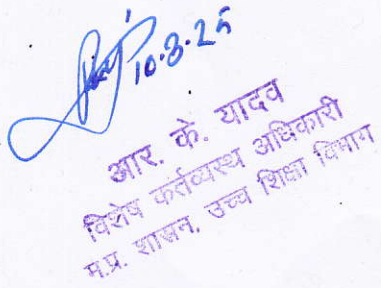 10.3.25
आर. के. यादव
विशेष कर्तव्यस्थ अधिकारी
म.प्र. शासन, उच्च शिक्षा विभाग